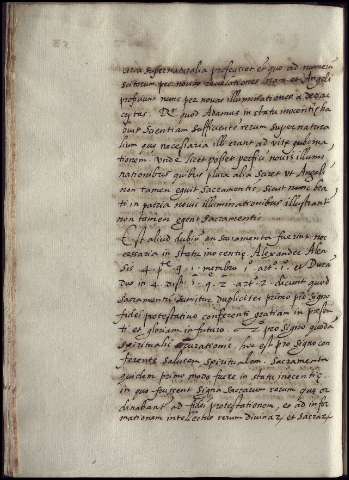 circa supernaturalia proficeret et quo ad numerum
per novas revelationes sicut et Angeli
proficiunt nunc per novas illuminationes a deo ac
ceptas. Et quod Adamus in statu inocentię ha
buit scientiam sufficiente rerum supernatura
lium quę necessaria illi erant ad vitę
tionem. Unde licet posset perfici novis illumi
nationibus quibus plura alia sciret ut Angelli
non tamen eguit sacramentis sicut nunc bea
ti in patria novis illuminationibus illustrant
non tamen egent sacramentis
Est aliud dubiu an sacramenta fuerint ne
cessaria in statu inocentię. Alexander Alen
sis 4. p. q. 1. metabro 1. art. 1. et Dura
dus in 4. dist. 1. q. 2. art. 2. dicunt quod
sacramentu sumitur dupliciter primo pro signo
fidei protestativo conferenti gratiam in presen
ti et gloriam in futuro. pro signo quodā
spirituali curationis hoc est pro signo con
ferente salutem spiritualem. Sacramenta
quidem primo modo fuere in statu inocentię
in quo fuissent signa sacrarum rerum quę or
dinabant ad fidei protestationem, et ad infor
mationem intelectus rerum divinar et sacrar